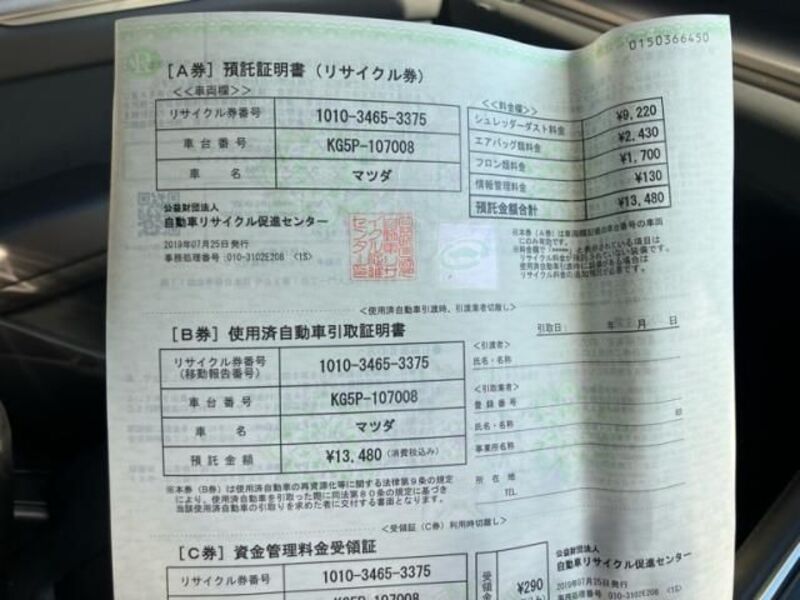 0150366450
[A券] 預託証明書 (リサイクル券)
<<車両欄>>
リサイクル券番号 1010-3465-3375
車台番号 KG5P-107008
車名 マツダ
<<料金欄>>
シュレッダーダスト料金 ¥9,220
エアバッグ類料金 ¥2,430
フロン類料金 ¥1,700
情報管理料金 ¥130
預託金額合計 ¥13,480
公益財団法人
自動車リサイクル促進センター
2019年07月25日発行
事務処理番号 :010-3102E208 <1S>
<使用済自動車引渡時、引渡業者切離し>
[B券] 使用済自動車引取証明書
引取日: 年 月 日
リサイクル券番号
(移動報告番号) 1010-3465-3375
車台番号 KG5P-107008
車名 マツダ
預託金額 ¥13,480 (消費税込み)
<引渡者>
氏名・名称
<引取業者>
登録番号
氏名・名称 印
事業所名称
所在地
TEL
※本券（B券）は使用済自動車の再資源化等に関する法律第9条の規定
により、使用済自動車を引取った際に同法第80条の規定に基づき
当該使用済自動車の引取りを求めた者に交付する書面となります。
<受領証（C券）利用時切離し>
[C券] 資金管理料金受領証
リサイクル券番号 1010-3465-3375
KG5P-107008
受領金
¥290
公益財団法人
自動車リサイクル促進センター
2019年07月25日発行
事務処理番号 :010-3102E208 <1S>